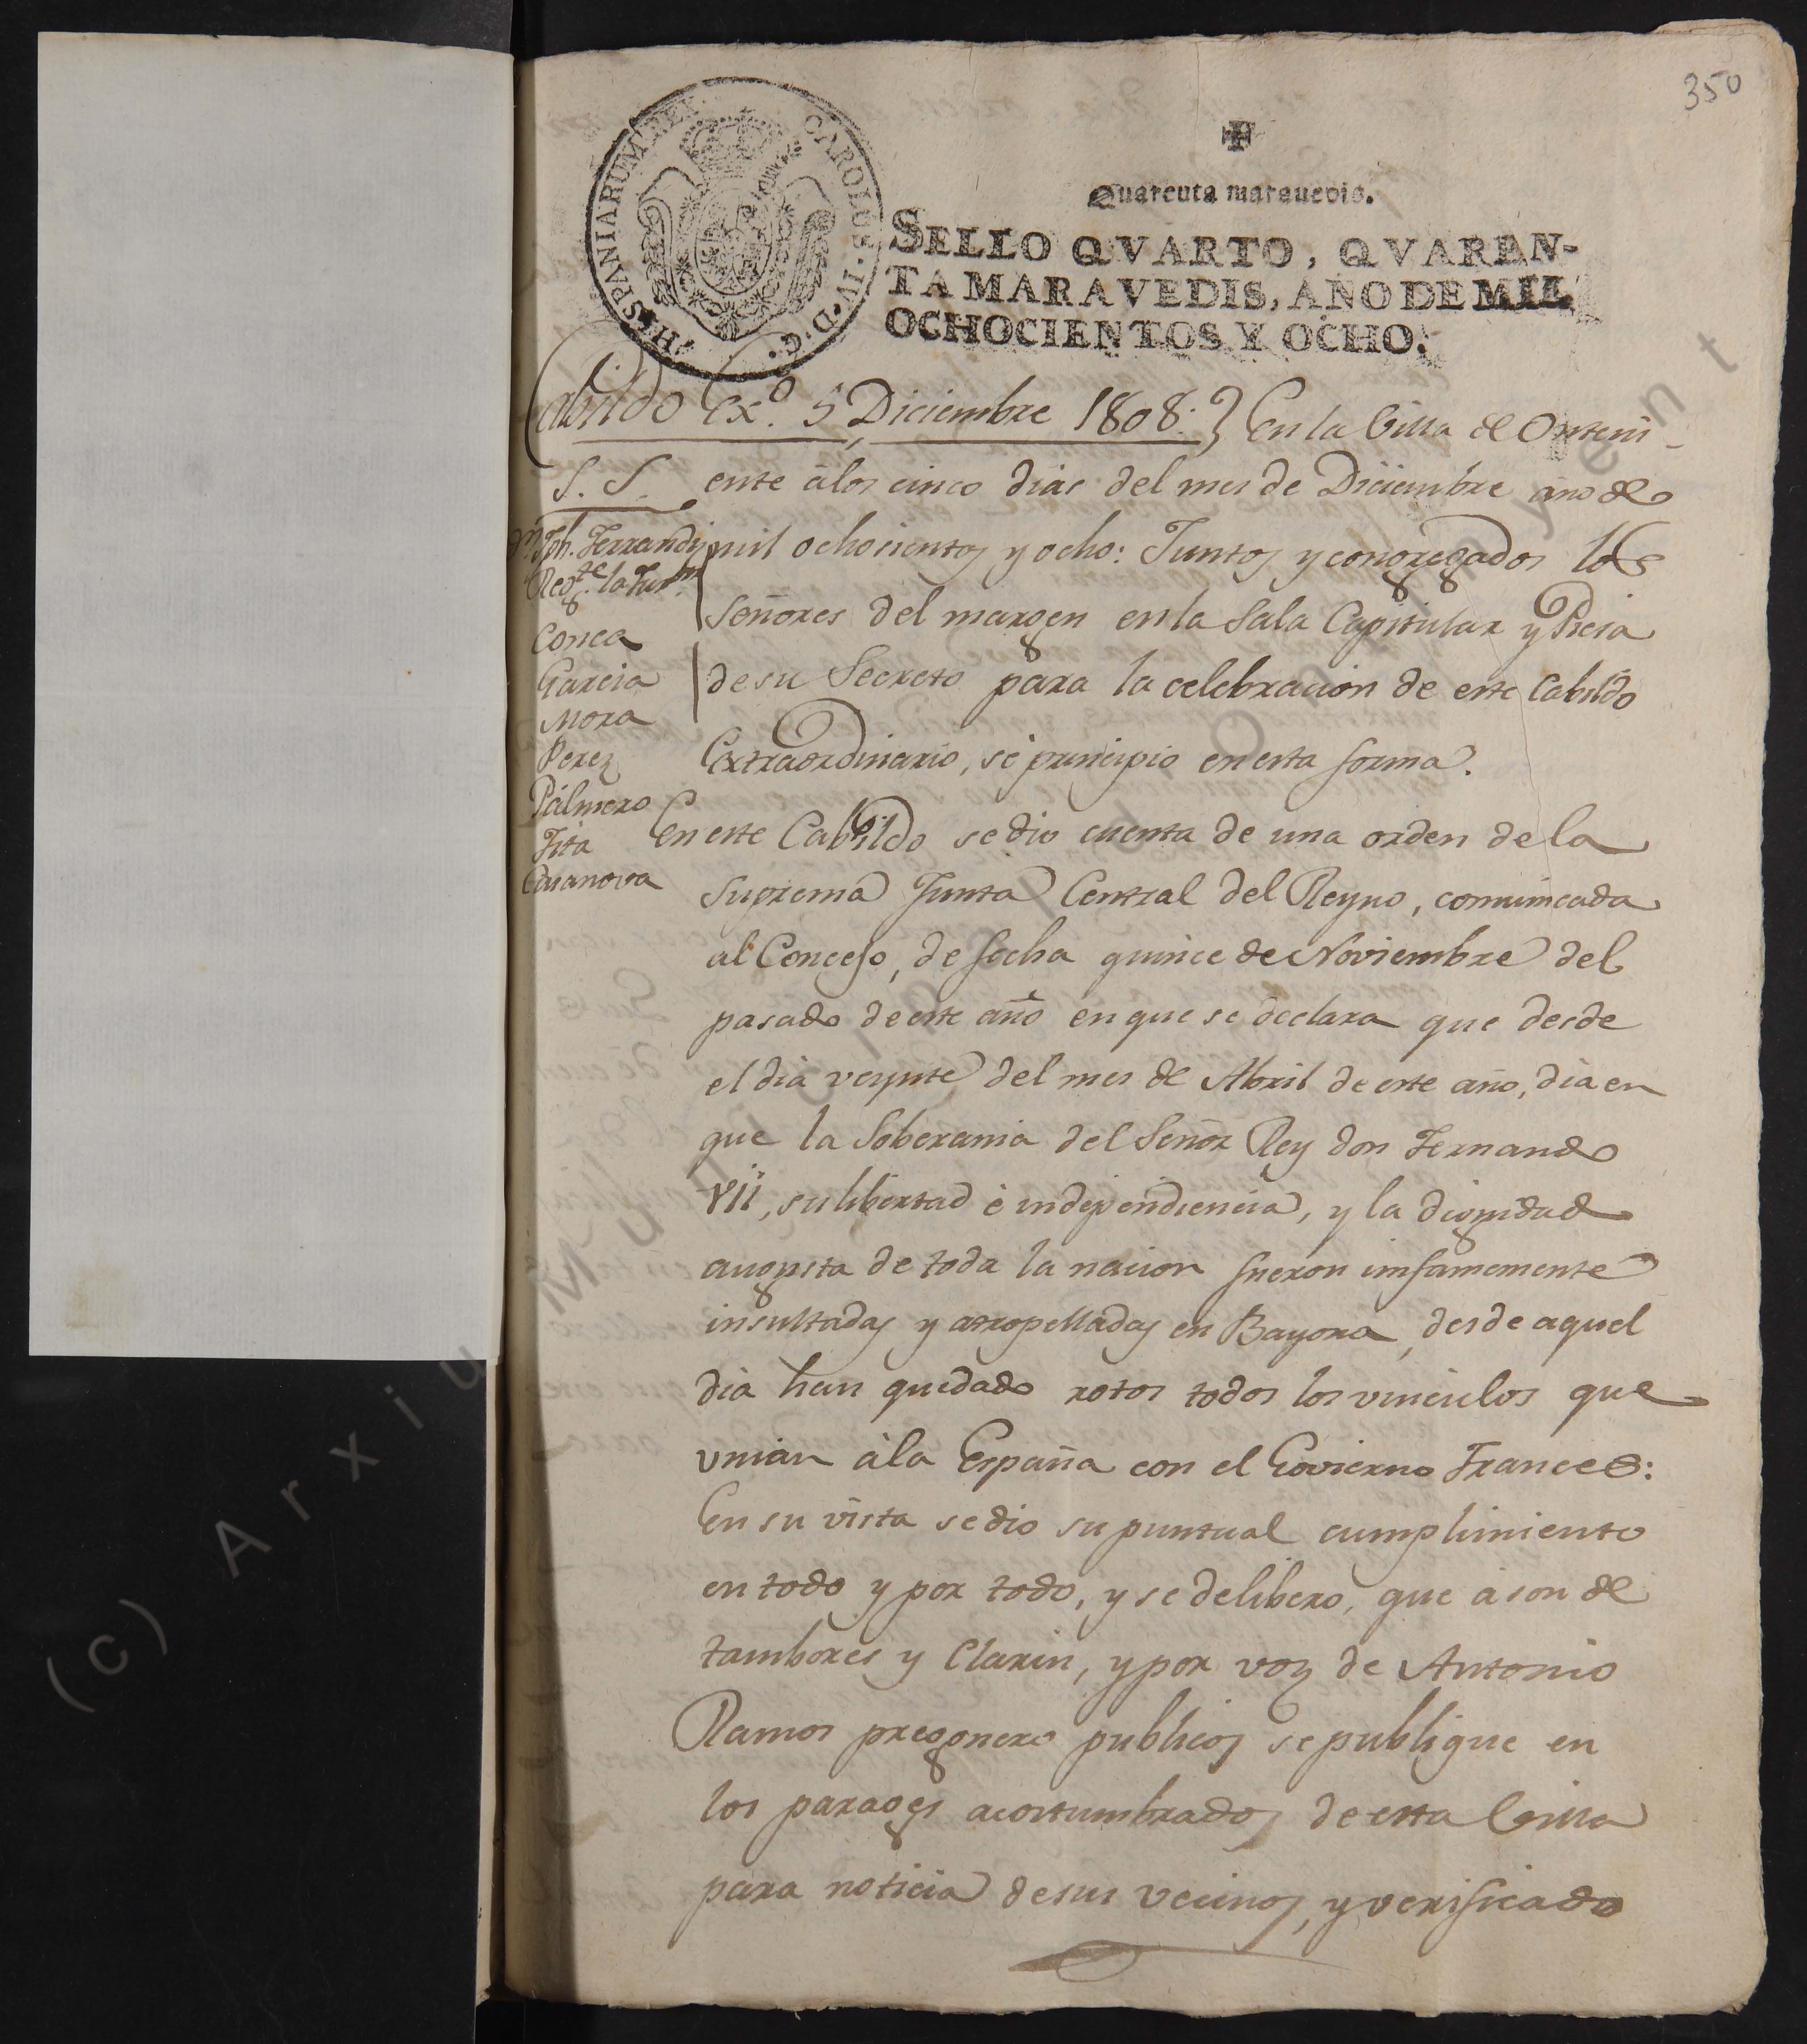 350
HISPANIARUM REX CAROLUS·IV·D·G·
Quarenta maravedis.
SELLO QVARTO, QVAREN-
TA MARAVEDIS, AÑO DE MIL
OCHOCIENTOS Y OCHO.
Cabildo Exº. 5 Diciembre 1808. } En la Villa de Onteni-
S. S.
Dn. Jph. Ferrandiz
Regte. la Jurn.
Conca
Garcia
Mora
Perez
Palmero
Fita
Casanova
ente à los cinco dias del mes de Diciembre año de
mil ochocientos y ocho: Juntos y congregados los
Señores del margen en la Sala Capitular y Piesa
de su Secreto para la celebracion de este Cabildo
Extraordinario, se principio en esta forma.
En este Cabildo se dio cuenta de una orden de la
Suprema Junta Central del Reyno, comunicada
al Concejo, de fecha quince de Noviembre del
pasado de este año en que se declara que desde
el dia veynte del mes de Abril de este año, dia en
que la Soberania del Señor Rey don Fernando
VII, su libertad è independiencia, y la dignidad
augusta de toda la nacion fueron imfamemente
insultadas y atropelladas en Bayona, desde aquel
dia han quedado rotos todos los vinculos que
unian à la España con el Govierno Frances:
En su vista se dio su puntual cumplimiento
en todo y por todo, y se delibero, que à son de
tambores y Clarin, y por voz de Antonio
Ramos pregonero publicos se publique en
los parages acostumbrados de esta Villa
para noticia de sus vecinos, y verificado
(c) Arxiu Municipal d'Ontinyent